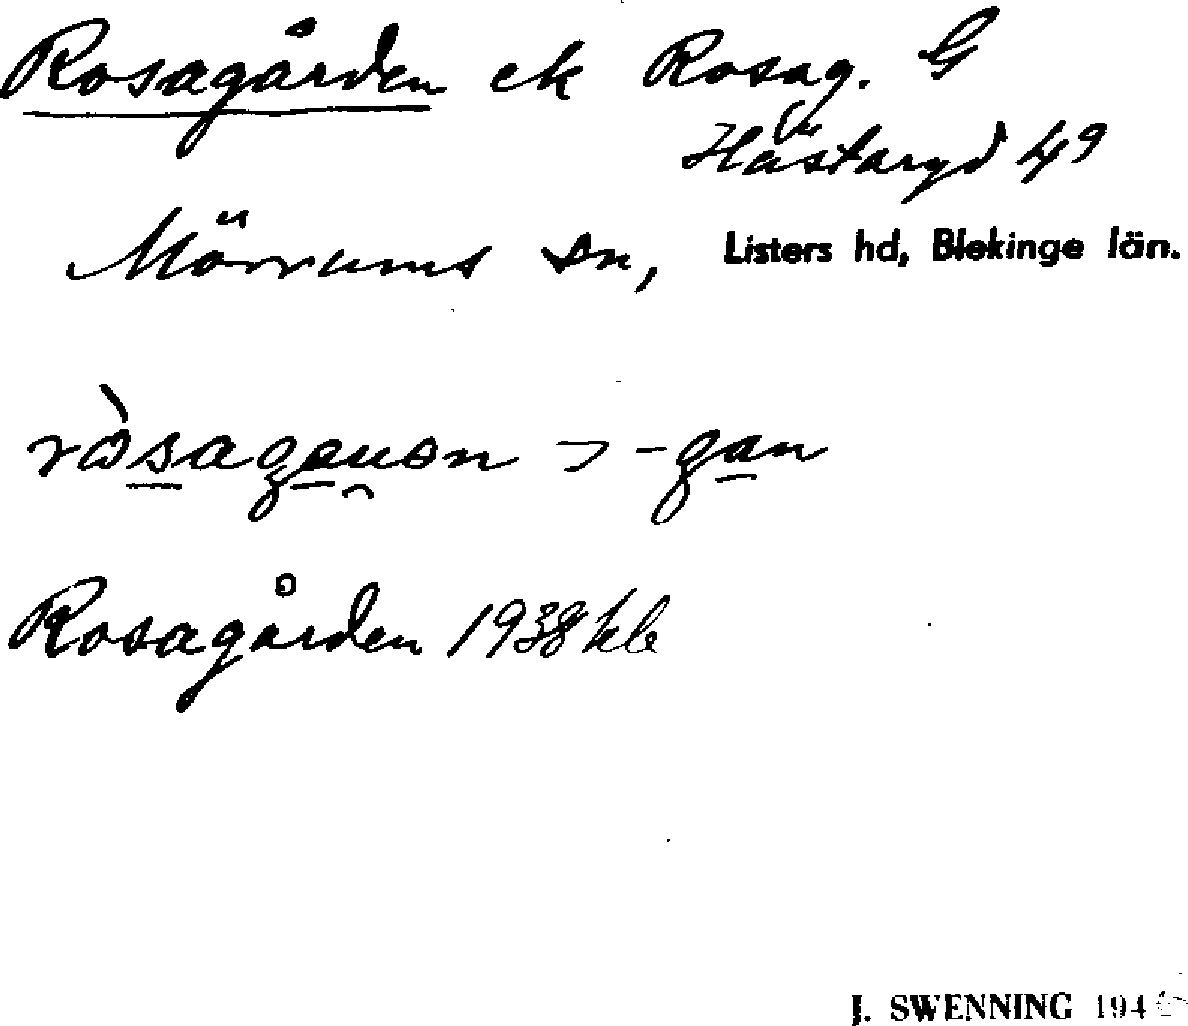 Rosagården ek Rosag. G
Hästaryd 4⁹
Mörrums sn, Listers hd, Blekinge län.
ròsagau̯ən > -gan
Rosagården 1938 kb
J. SWENNING 194